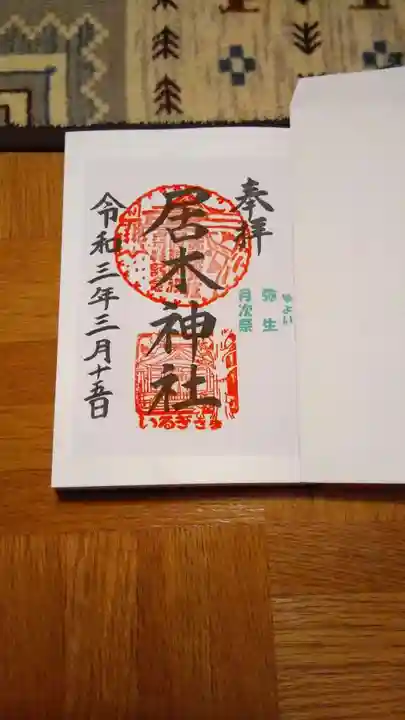 奉拝
弥生
やよい
月次祭
居木神社
いるぎさま
令和三年三月十五日